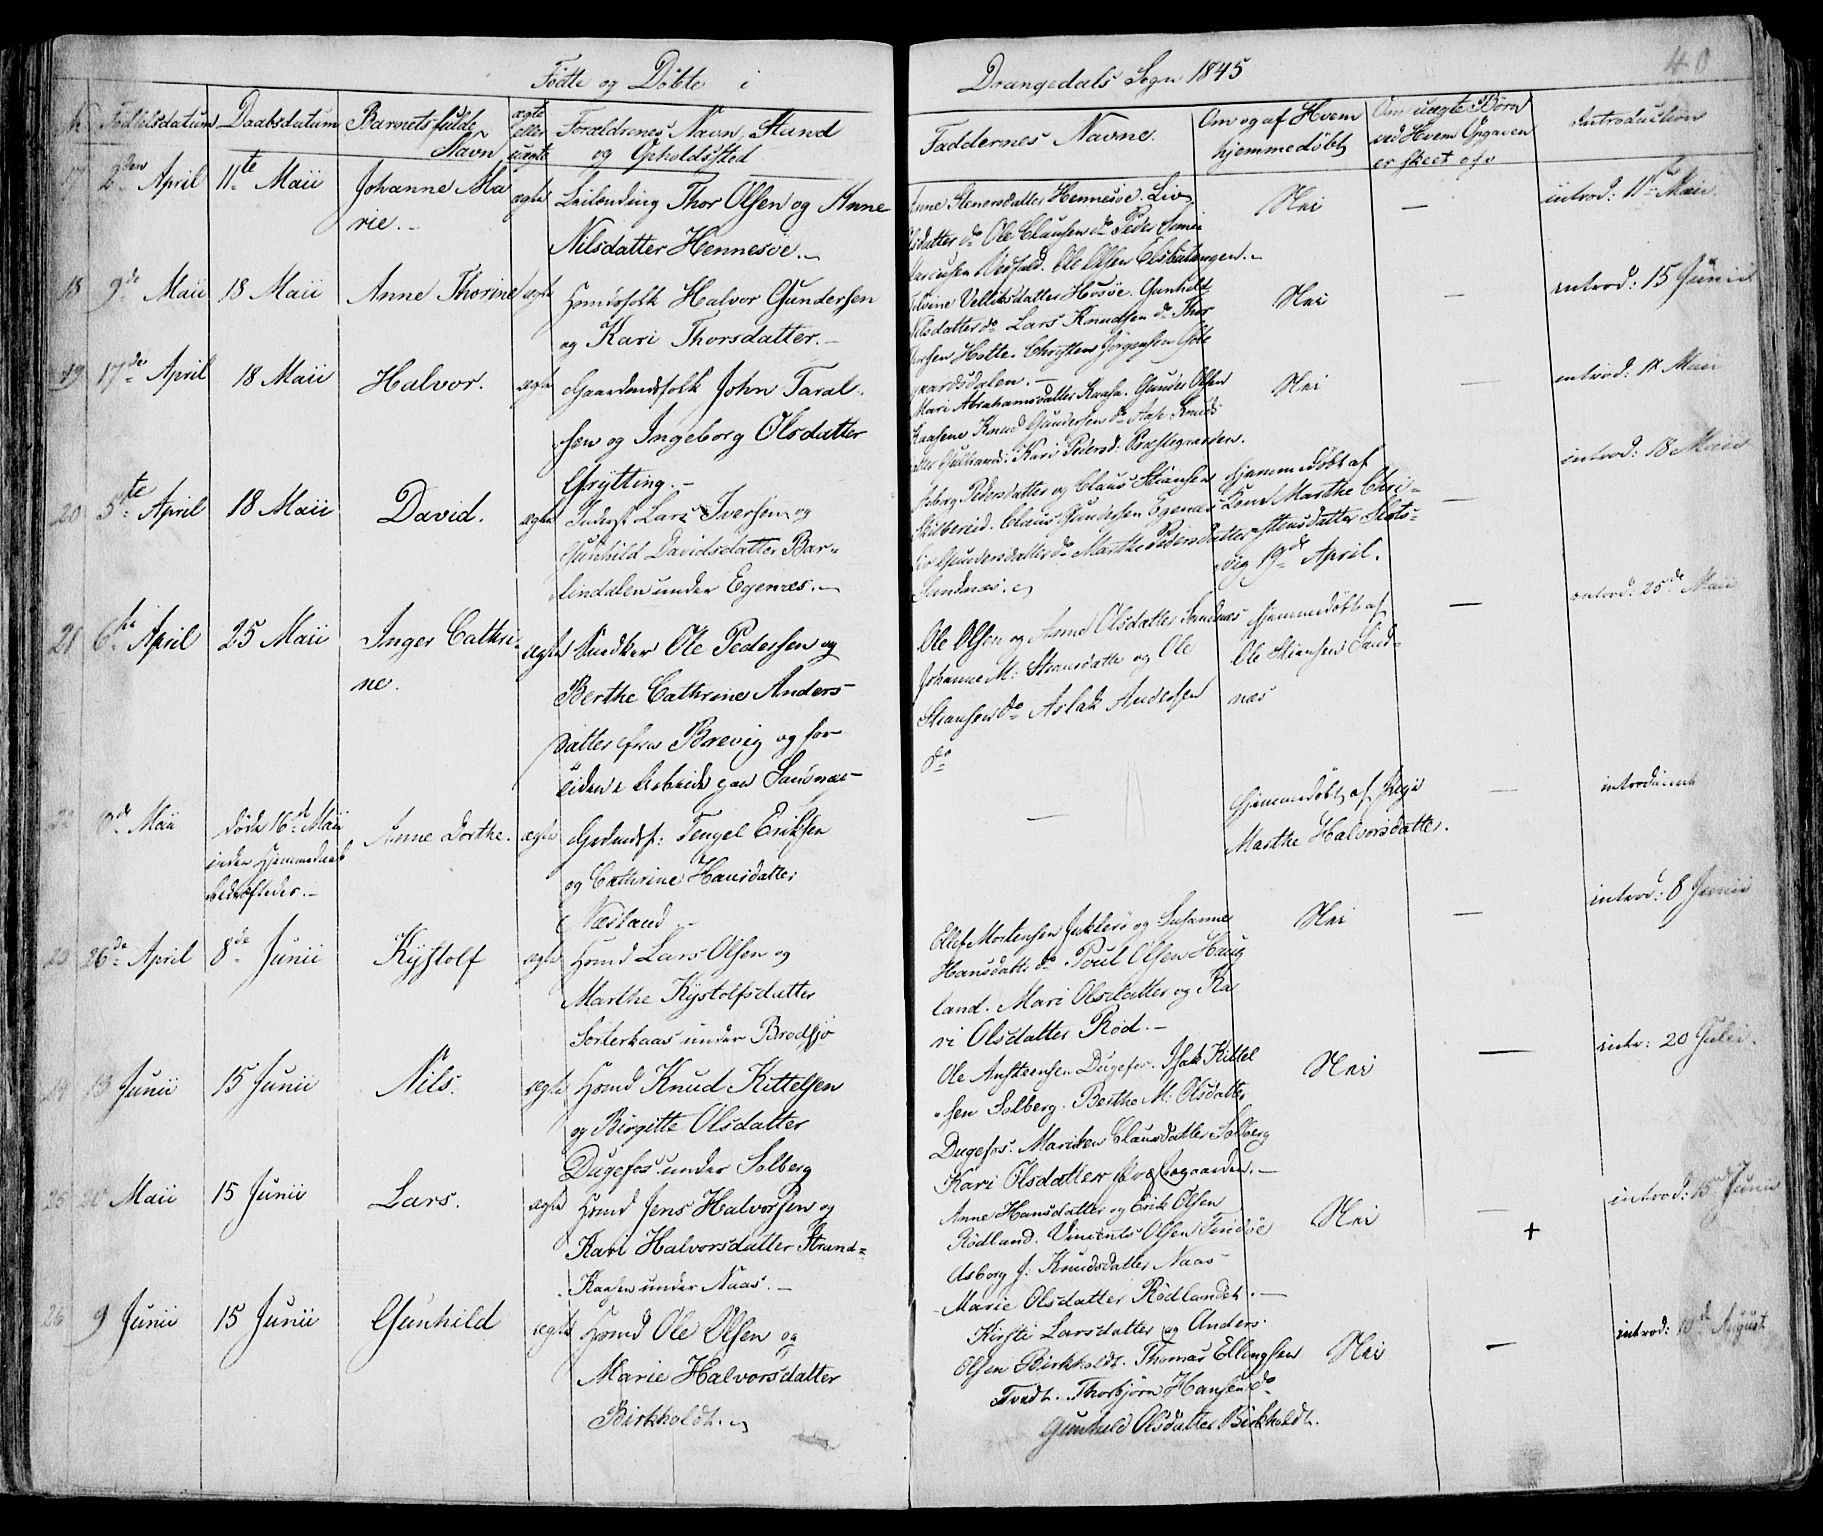 Fødte og Døbte i Drangedals Sogn 1845
40
№ Fødselsdatum Daabsdatum Barnets fulde Navn ægte eller uægte Forældrenes Navn, Stand og Opholdssted
Faddernes Navne. Om og af Hvem hjemmedøbt Om uægte Børn ved Hvem Opgaven er skeet osv Introduction
17 2den April 11te Maii Johanne Ma
rie.
ægte Leilending Thor Olsen og Anne
Nilsdatter Hennesøe.
Anne Stenersdatter Hennesøe. Liv
Olsdatter do Ole Clausen do Peder
Ole Olsen
Nei — introd: 11te Maii.
18 9de Maii 18 Maii Anne Thorine ægte Huusfolk Halvor Gundersen
og Kari Thorsdatter.
Gunhild
Nilsdatter do Lars Knudsen do Thor
Christen Jørgensen
Nei — introd: 15 Junii
19 17de April 18 Maii Halvor. ægte Gaardmdsfolk John Taral-
sen og Ingeborg Olsdatter
Grytting.
Mari Abrahamsdatter Kaasa. Gunder Olsen
Knud Gundersen do
Kari Pedersd: Præstegaarden.
Nei — introd: 12 Maii
20 5te April 18 Maii David. ægte Inderst Lars Iversen og
Gunhild Davidsdatter Bar-
lindalen under Egenæs.
Pedersdatter og Claus Stiansen
Claus Gundersen Egenæs
Gundersdatter do Marthe Pedersdatter
Sandnæs.
hjemmedøbt af
Kone Marthe Chri-
stensdatter Slots-
vig 19de April.
— introd: 18 Maii
21 6te April 25 Maii Inger Cathri-
ne.
ægte Snedker Ole Pedersen og
Berthe Cathrine Anders-
datter fra Brevig og for
tiden i Arbeide paa Sandnæs
Ole Olsen og Anne Olsdatter Sandnæs
Johanne M: Stiansdatter og Ole
Stiansen do Aslak Andersen
do
hjemmedøbt af
Ole Stiansen Sand-
næs
— introd: 25de Maii
22 Maii døde 16de Maii
inden Hjemmedaab
bekræftedes.
Anne Dorthe. ægte Gdmdsf: Tengel Eriksen
og Cathrine Hansdatter
Næsland
— hjemmedøbt af Pige
Marthe Halvorsdatter.
— introduceret
23 26de April 8de Junii Kystolf ægte Hmd Lars Olsen og
Marthe Kystolfsdatter
Sorterkaas under Brødsjø
Ellef Mortensen Jukler og Susanne
Hansdatter do Poul Olsen Haug
land. Mari Olsdatter og Ka
ri Olsdatter Rød.
Nei — introd: 8 Junii
24 13 Junii 15 Junii Nils. ægte Hmd Knud Kittelsen
og Birgitte Olsdatter
Dugefos under Solberg
Ole Anstensen Dugefos. Isak Kittel
sen Solberg. Berthe M: Olsdatter
Dugefos. Mariken Clausdatter Solberg
Kari Olsdatter Præstegaarden.
Nei — intr: 20 Julii.
25 Maii 15 Junii Lars. ægte Hmd Jens Halvorsen og
Kari Halvorsdatter Strand-
Kaasen under Naas.
Anne Hansdatter og Erik Olsen
Rødland. Vincents Olsen
Asborg J: Knudsdatter Naas
Marie Olsdatter Rødlandet.
Nei — + introd: 15de Junii
26 9 Junii 15 Junii Gunhild ægte Hmd Ole Olsen og
Marie Halvorsdatter
Birkholdt.
Kirsti Larsdatter og Anders
Olsen Birkholdt. Thomas Ellingsen
Tvedt. Thorbjørn Hansen do
Gunhild Olsdatter Birkholdt.
Nei — introd: 10de August